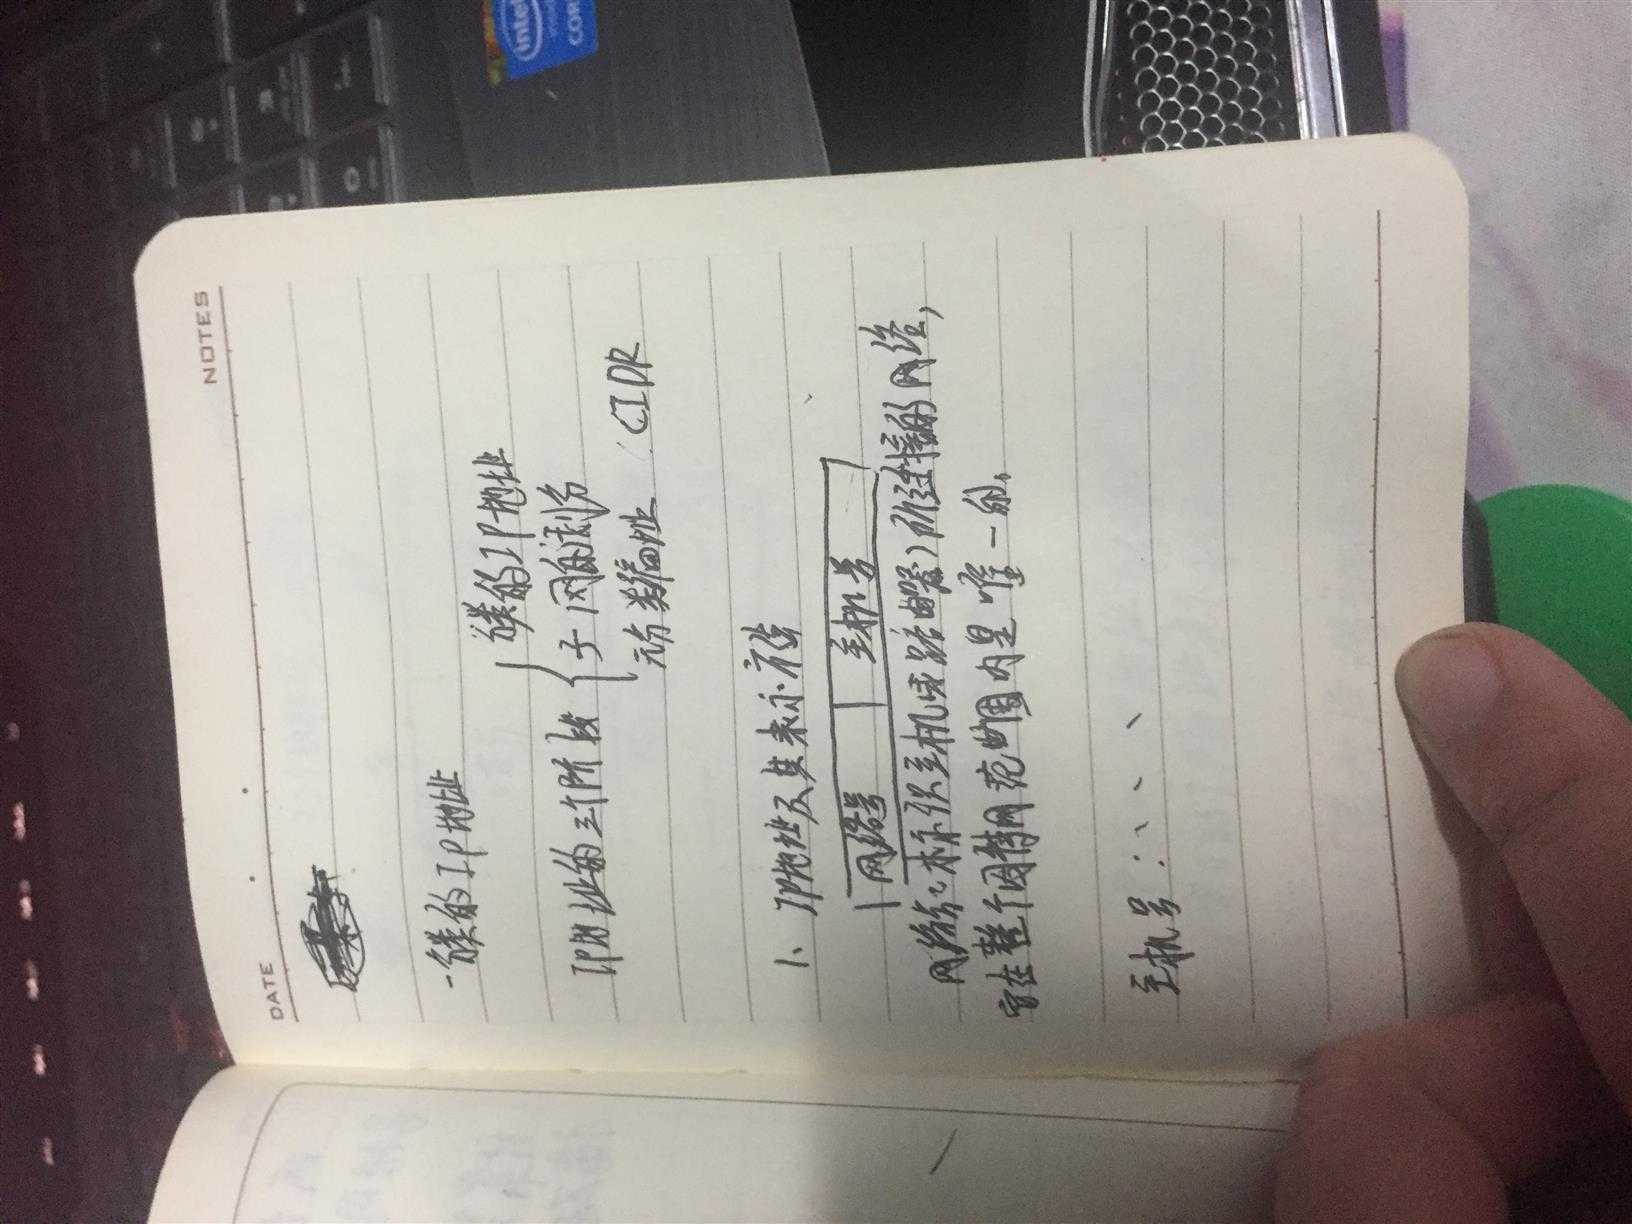 NOTES
DATE
一 分类的IP地址
分类的IP地址
IP地址的三个阶段
子网的划分
无分类编址 CIDR
1、IP地址及其表示方法
网络号 主机号
网络号:标识主机(或路由器)所连接的网络,
它在整个因特网范围内是唯一的。
主机号:
intel
CORE